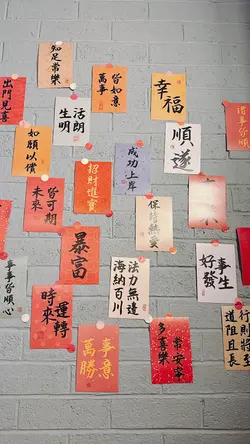 知足常樂
出門見喜
萬事
皆如意
幸福
生活
明朗
順遂
如願以償
成功上岸
招財進寶
未來
皆可期
保持熱愛
暴富
好事
發生
法力無邊
海納百川
事事皆順心
時來
運轉
萬事
勝意
多喜樂
常安寧
道阻且長
行則將至